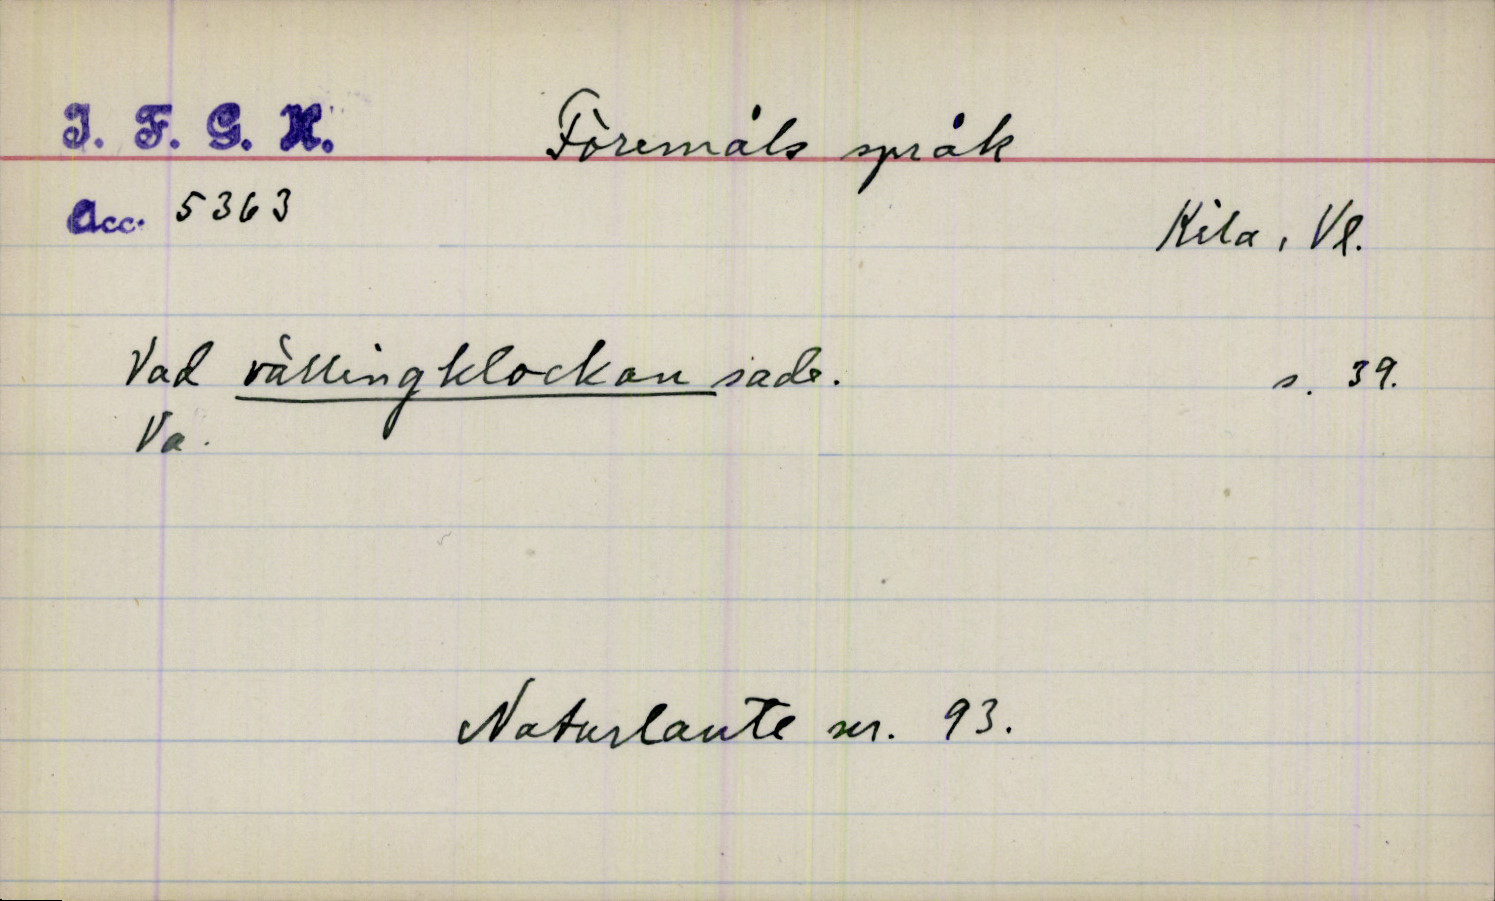 I. F. G. H. Föremåls språk
Acc. 5363
Kila, Vl.
Vad vällingklockan sade. s. 39.
Va.
Naturlaute nr. 93.